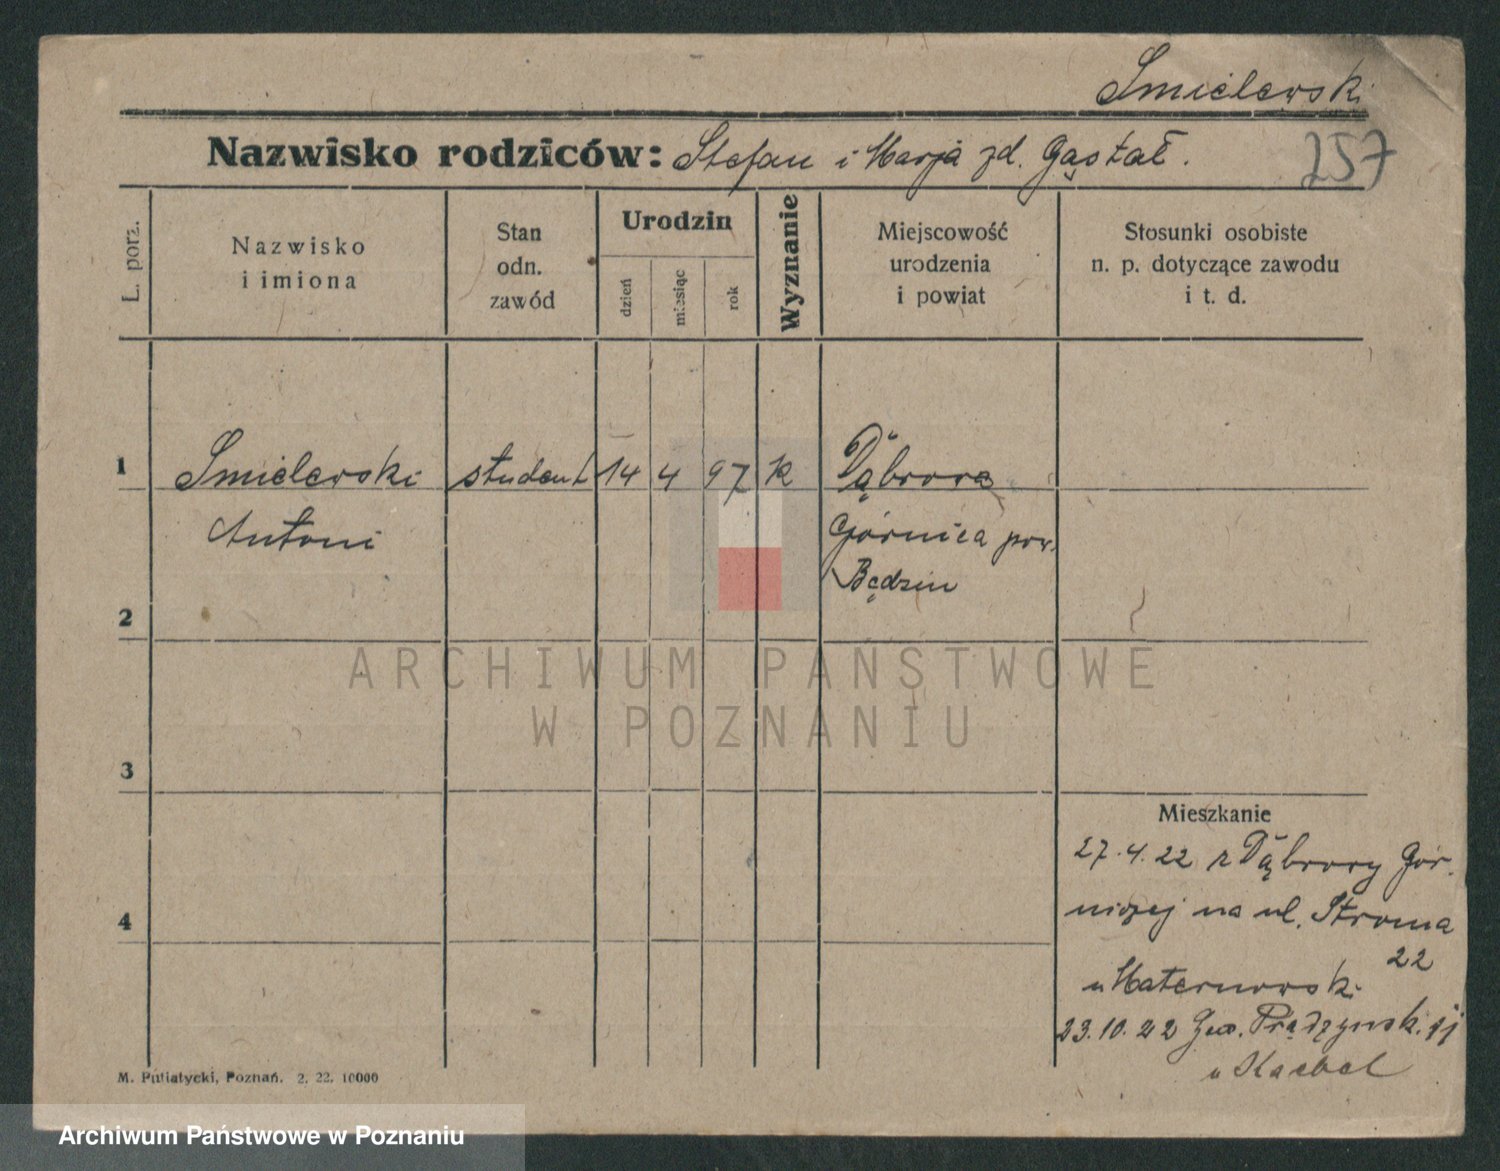 Smielewski
Nazwisko rodziców: Stefan i Marja zd. Gąstał.
257
L. porz.
Nazwisko
i imiona
Stan
odn.
zawód
Urodzin
dzień
miesiąc
rok
Wyznanie
Miejscowość
urodzenia
i powiat
Stosunki osobiste
n. p. dotyczące zawodu
i t. d.
1
Smielewski
student
14
4
97
k
Dąbrowa
Antoni
Górnica pow.
Będzin
2
ARCHIWUM PAŃSTWOWE
W POZNANIU
3
Mieszkanie
27.4.22 z Dąbrowy Gór-
niczej na ul. Stroma
22
4
u Maternowski
23.10.22 Gen. Prądzyńsk.
u
M. Putiatycki, Poznań. 2. 22. 10000
Archiwum Państwowe w Poznaniu